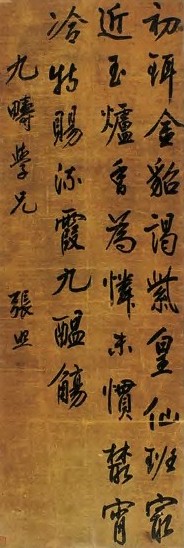 初珥金貂謁紫皇仙班最
近玉爐香為憐未慣叢宵
冷特賜流霞九醖觴
九疇學兄
張照